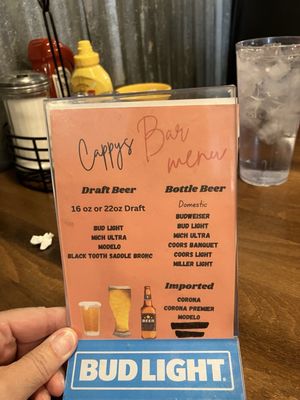 Cappys Bar
menu
Draft Beer
16 oz or 22oz Draft
BUD LIGHT
MICH ULTRA
MODELO
BLACK TOOTH SADDLE BRONC
Bottle Beer
Domestic
BUDWEISER
BUD LIGHT
MICH ULTRA
COORS BANQUET
COORS LIGHT
MILLER LIGHT
Imported
CORONA
CORONA PREMIER
MODELO
BEER
BUD LIGHT